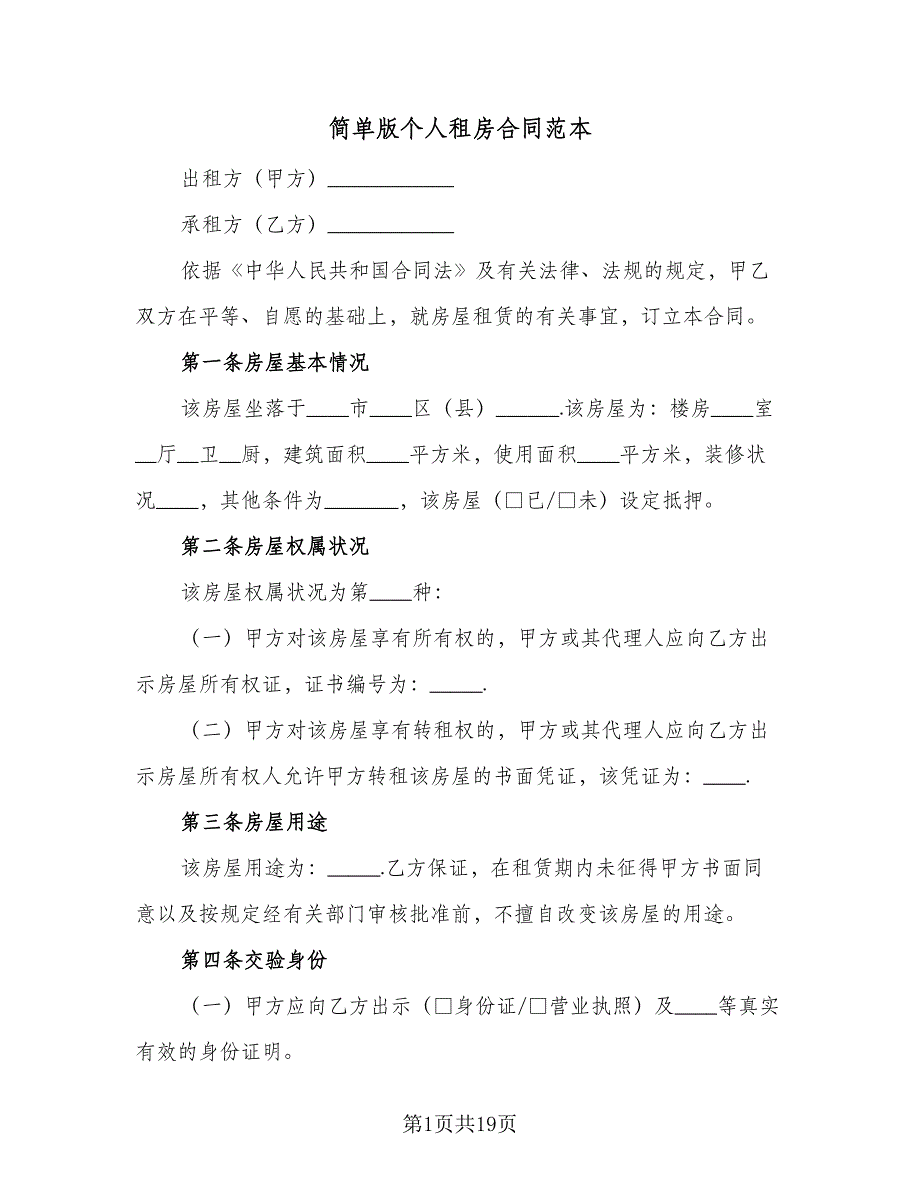 简单版个人租房合同范本
出租方（甲方）____________
承租方（乙方）____________
依据《中华人民共和国合同法》及有关法律、法规的规定，甲乙
双方在平等、自愿的基础上，就房屋租赁的有关事宜，订立本合同。
第一条房屋基本情况
该房屋坐落于____市____区（县）______.该房屋为：楼房____室
__厅__卫__厨，建筑面积____平方米，使用面积____平方米，装修状
况____，其他条件为_______，该房屋（□已/□未）设定抵押。
第二条房屋权属状况
该房屋权属状况为第____种：
（一）甲方对该房屋享有所有权的，甲方或其代理人应向乙方出
示房屋所有权证，证书编号为：_____.
（二）甲方对该房屋享有转租权的，甲方或其代理人应向乙方出
示房屋所有权人允许甲方转租该房屋的书面凭证，该凭证为：____.
第三条房屋用途
该房屋用途为：_____.乙方保证，在租赁期内未征得甲方书面同
意以及按规定经有关部门审核批准前，不擅自改变该房屋的用途。
第四条交验身份
（一）甲方应向乙方出示（□身份证/□营业执照）及____等真实
有效的身份证明。
第1页共19页